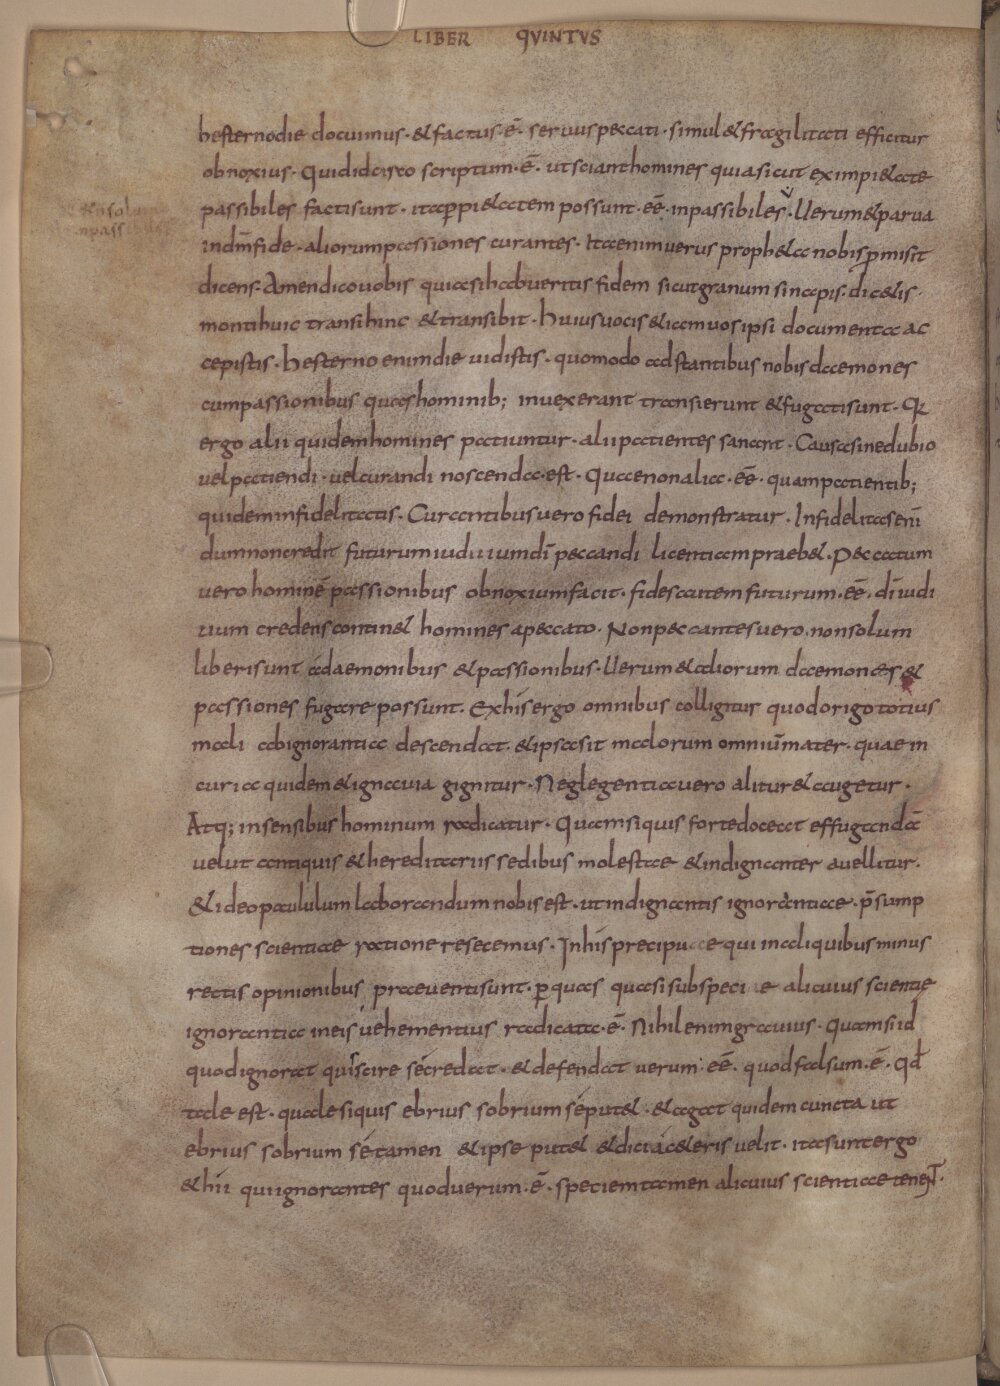 LIBER QVINTVS
hesterno die docuimus · & factus · ē · seruus peccati · simul & fragilitati efficitur
obnoxius · Quid idcirco scriptum · ē · ut sciant homines quia sicut ex impi&ate
passibiles facti sunt · ita p pi&atem possunt · eē · inpassibiles · Uerum & parua
in dm̄ fide · aliorum passiones curantes · Ita enim uerus proph&a nobis p̱misit
dicens · Amen dico uobis quia si habueritis fidem sicut granum sinapis · dic&is ·
monti huic transi hinc & transibit · huius uocis & iam uos ipsi documenta ac
cepistis · hesterno enim die uidistis · quomodo adstantibus nobis daemones
cum passionibus quas hominib; inuexerant transierunt & fugati sunt · Qr
ergo alii quidem homines patiuntur · alii patientes sanant · Causa sine dubio
uel patiendi · uel curandi noscenda · est · Quae non alia · eē · quam patientib;
quidem infidelitatis · Curantibus uero fidei demonstratur · Infidelitas enī
dum non credit futurum iudicium dī peccandi licentiam praeb& · Peccatum
uero hominē passionibus obnoxium facit · fides autem futurum · eē · dī iudi
cium credens contin& homines a peccato · Non peccantes uero · non solum
liberi sunt a daemonibus & passionibus · Uerum & aliorum daemones &
passiones fugare possunt · Ex his ergo omnibus colligitur quod origo totius
mali ab ignorantia descendat · & ipsa sit malorum omniū mater · quae in
curia quidem & ignauia gignitur · Neglegentia uero alitur & augetur ·
Atq; in sensibus hominum radicatur · Quam si quis forte doceat effugandā
uelut antiquis & hereditariis sedibus molestae & indignanter auellitur ·
& ideo paululum laborandum nobis est · ut indignantis ignorantiae · p̄sump
tiones scientiae ratione resecemus · In his precipuae qui mali quibus minus
rectis opinionibus praeuenti sunt · p̱ quas quasi sub speciae alicuius scientię
ignorantia in eis uehementius radicata · ē · Nihil enim grauius · Quam si id
quod ignorat quis scire sé credat · & defendat uerum · eē · quod falsum · ē · Qd̄
tale est · quale si quis ebrius sobrium sé put& · & agat quidem cuncta ut
ebrius sobrium sé tamen & ipse put& & dici á c&eris uelit · ita sunt ergo
& hii qui ignorantes quod uerum · ē · speciem tamen alicuius scientiae tenent ·